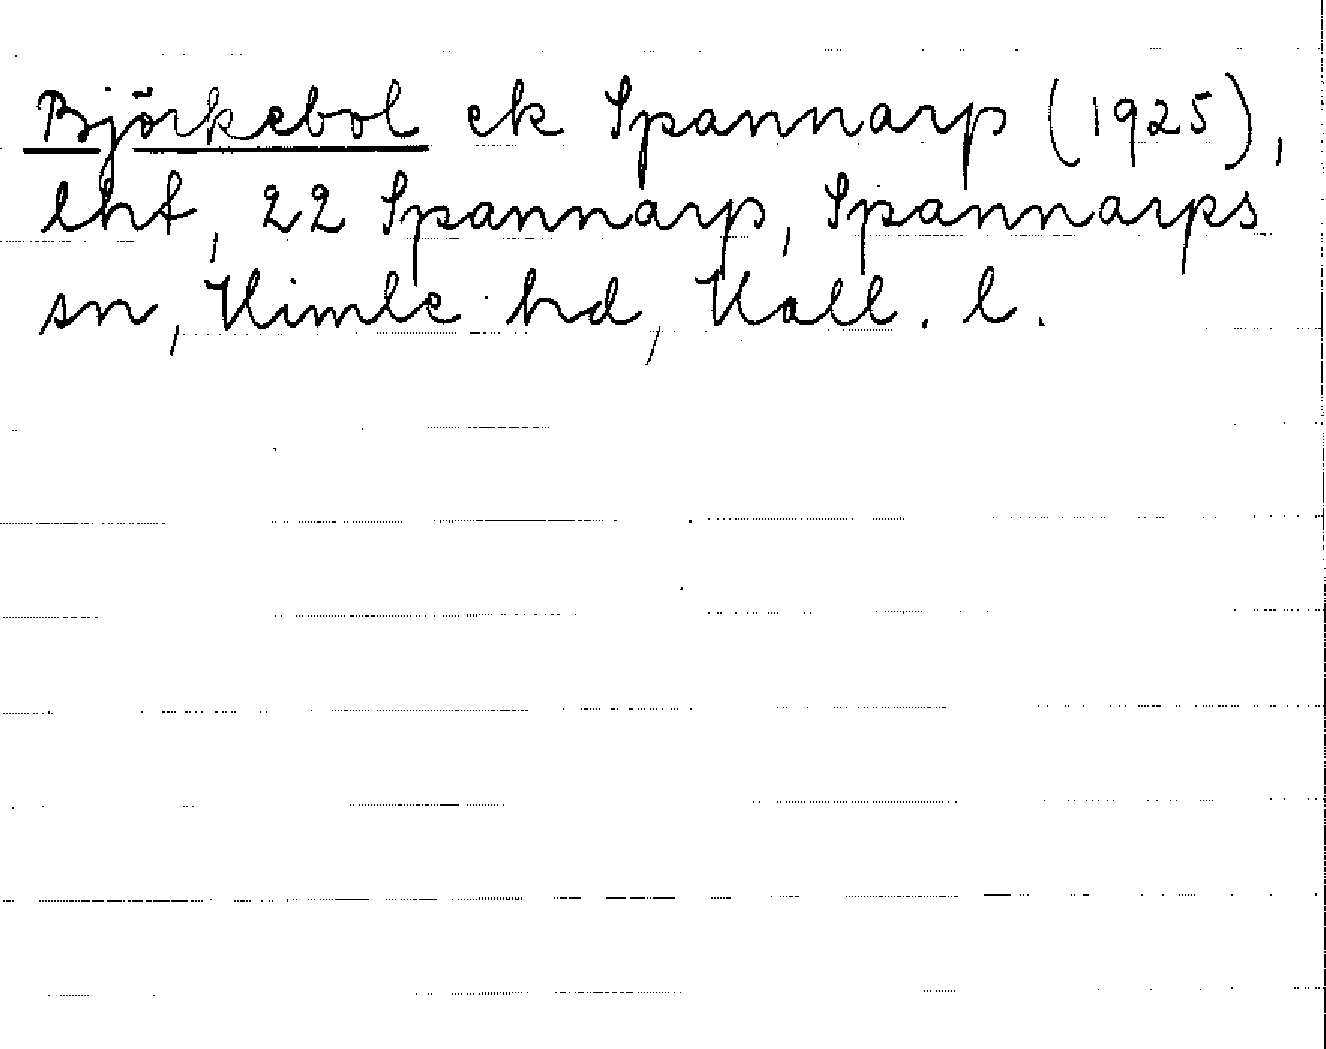 Björkebol ek Spannarp (1925),
lht, 22 Spannarp, Spannarps
sn, Himle hd, Hall. l.